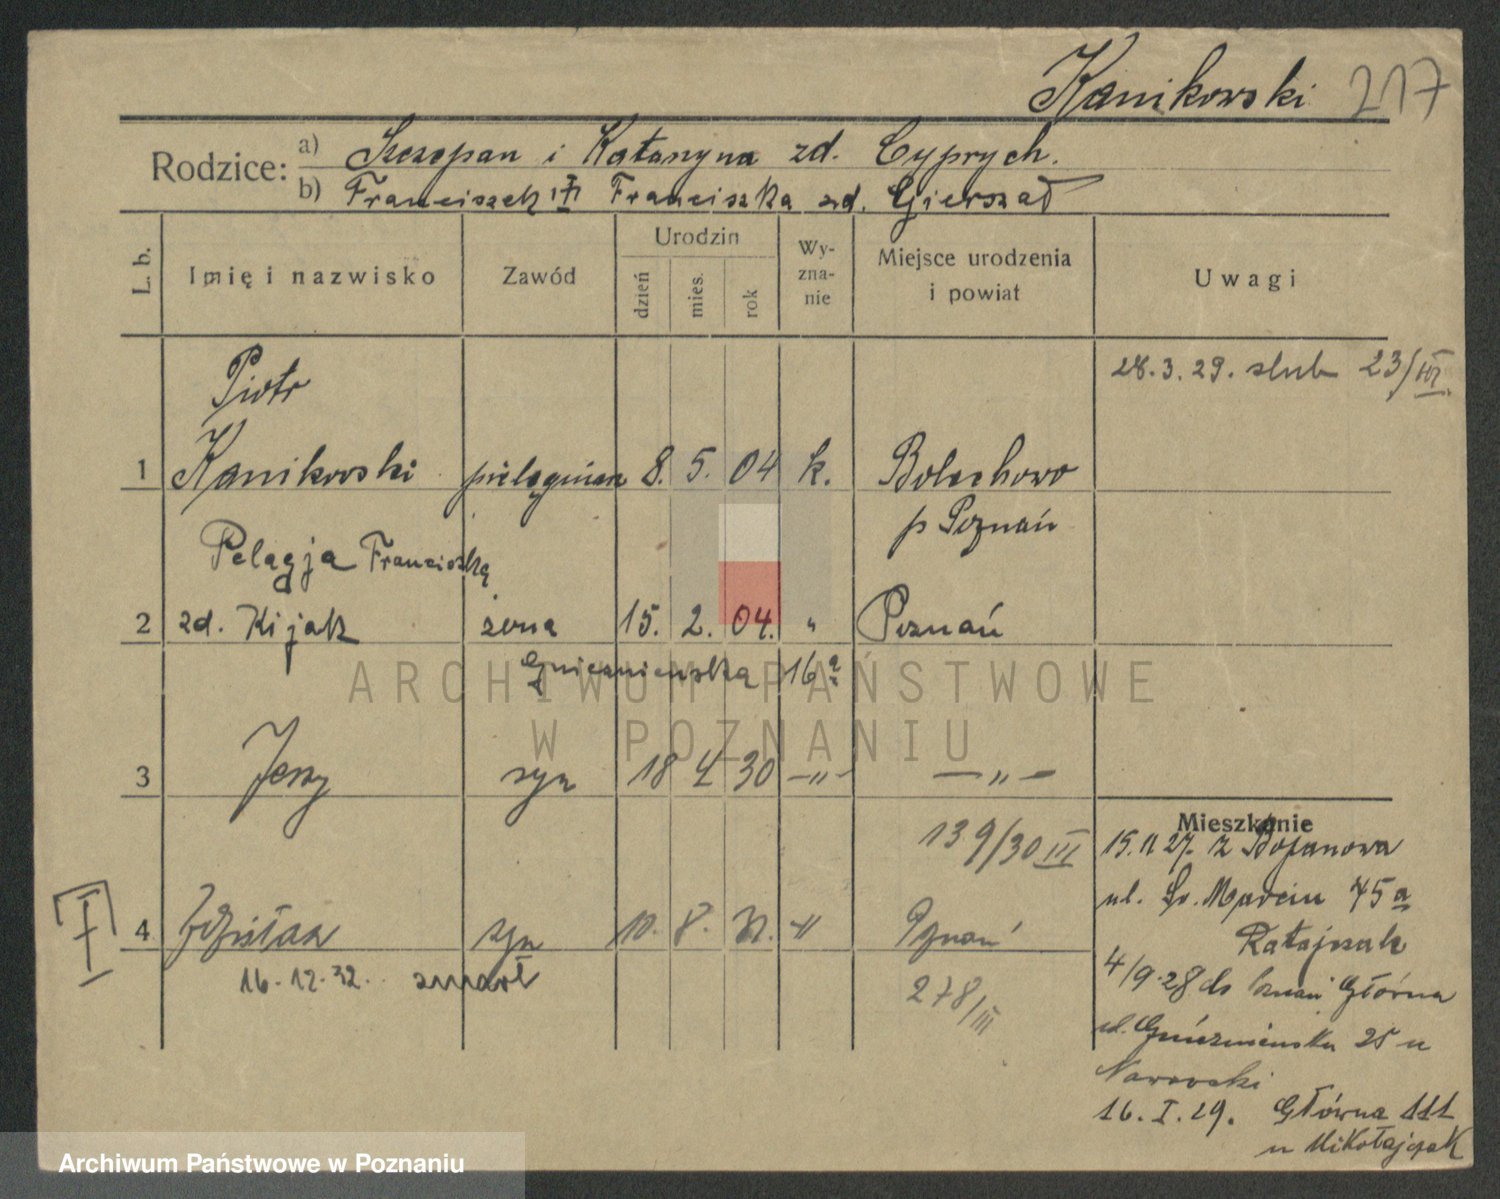 Kanikowski 217
Rodzice: a) Szczepan i Katarzyna zd. Cyprych.
b) Franciszek i Franciszka zd. Gierszał
L. b. Imię i nazwisko Zawód Urodzin dzień mies. rok Wy-zna-nie Miejsce urodzenia i powiat Uwagi
28.3.29. ślub 23/III.
Piotr
1 Kanikowski pielęgniarz 8. 5. 04 k. Bolechowo
p Poznań
Pelagja Franciszka
2 zd. Kijak żona 15. 2. 04. " Poznań
Gnieźnieńska 16a
ARCHIWUM PAŃSTWOWE
W POZNANIU
3 Jerzy syn 18 4 30 —"— —"—
139/30 III
Mieszkanie
15.11 27. z Bojanowa
ul. Św. Marcin 45a
Ratajczak
4 Zdzisław syn 10. 8. 31. " Poznań
16.12.32. zmarł
278/III
4/9.28 do Poznań Główna
ul. Gnieźnieńska 25 u
Nawrocki
16. I. 29. Główna 111
u Mikołajczak
Archiwum Państwowe w Poznaniu